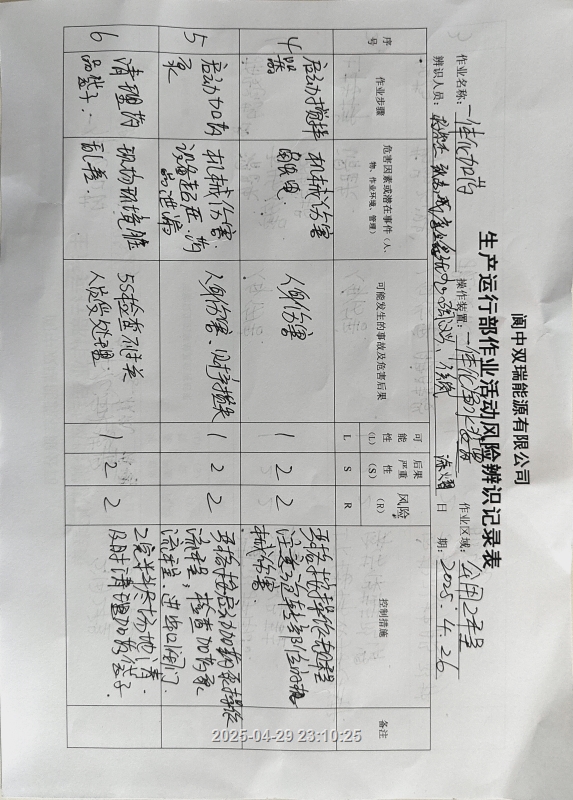 阆中双瑞能源有限公司
生产运行部作业活动风险辨识记录表
作业名称：一体化加药 操作装置：一体化加药装置 作业区域：公用工程
辨识人员： 日 期：2025.4.26
序号 作业步骤 危害因素或潜在事件（人、物、作业环境、管理） 可能发生的事故及危害后果 可能性（L） 后果严重性（S） 风险（R） 控制措施 备注
L S R
4 启动搅拌器 机械伤害 人身伤害 1 2 2 严格按操作规程 注意运转部位的机械伤害
5 启动加药泵 机械伤害 设备超压、药品泄漏 人身伤害、财产损失 1 2 2 严格按启动加药泵操作流程，检查加药泵流程、进出口阀门
6 清理药品袋子. 现场环境脏乱差. 5S检查不过关 人员受处理. 1 2 2 工完料尽场地清. 及时清理加药袋子
2025-04-29 23:10:25